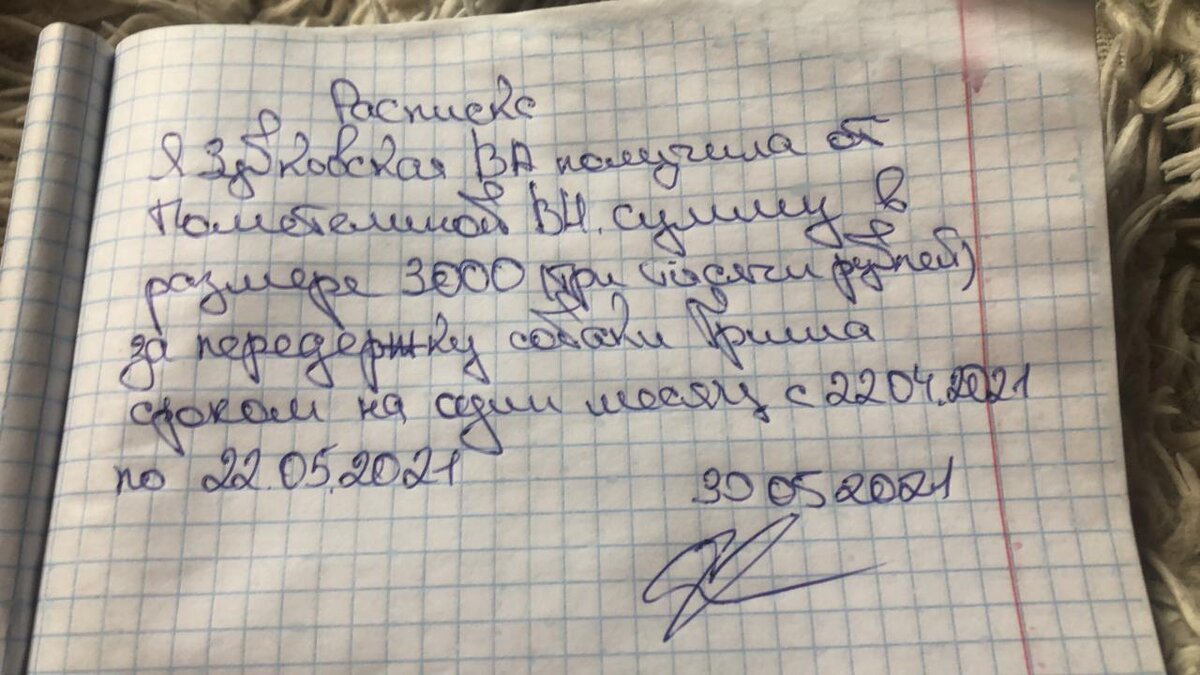 Расписка
Я Зубковская ВА получила от
В.Н. сумму в
размере 3000 (три тысячи рублей)
за передержку собаки Гриша
сроком на один месяц с 22 04.2021
по 22.05.2021
30 05 2021